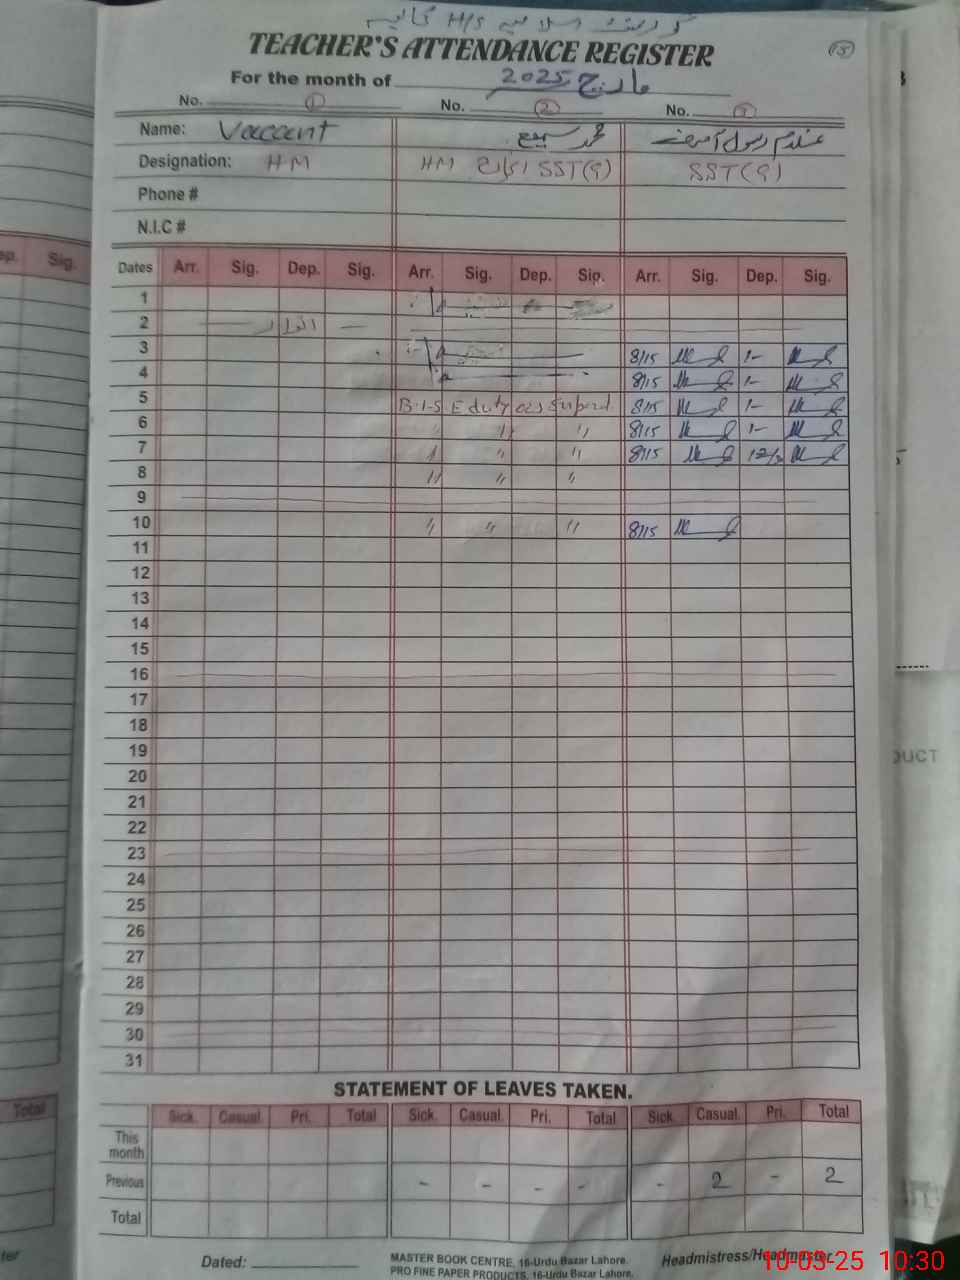 گورنمنٹ اسلامیہ H/S
TEACHER'S ATTENDANCE REGISTER
15
For the month of مارچ 2025
No. 1 No. 2 No. 3
Name: Vaccant محمد سمیع غلام رسول
Designation: HM HM انچارج SST(9) SST(9)
Phone #
N.I.C #
ep. Sig.
Dates Arr. Sig. Dep. Sig. Arr. Sig. Dep. Sig. Arr. Sig. Dep. Sig.
1
2 اتوار
3 8/15 1-
4 8/15 1-
5 B-I-S E duty 8/15 1-
6 〃 〃 〃 8/15 1-
7 〃 〃 〃 8/15
8 〃 〃 〃
9
10 〃 〃 〃 8/15
11
12
13
14
15
16
17
18
19
20
21
22
23
24
25
26
27
28
29
30
31
STATEMENT OF LEAVES TAKEN.
Total
Sick. Casual. Pri. Total Sick. Casual. Pri. Total Sick. Casual. Pri. Total
This month
Previous - - - - - 2 - 2
Total
Dated: MASTER BOOK CENTRE, 16-Urdu Bazar Lahore. Headmistress/Headmaster
PRO FINE PAPER PRODUCTS, 16-Urdu Bazar Lahore.
10-03-25 10:30
DUCT